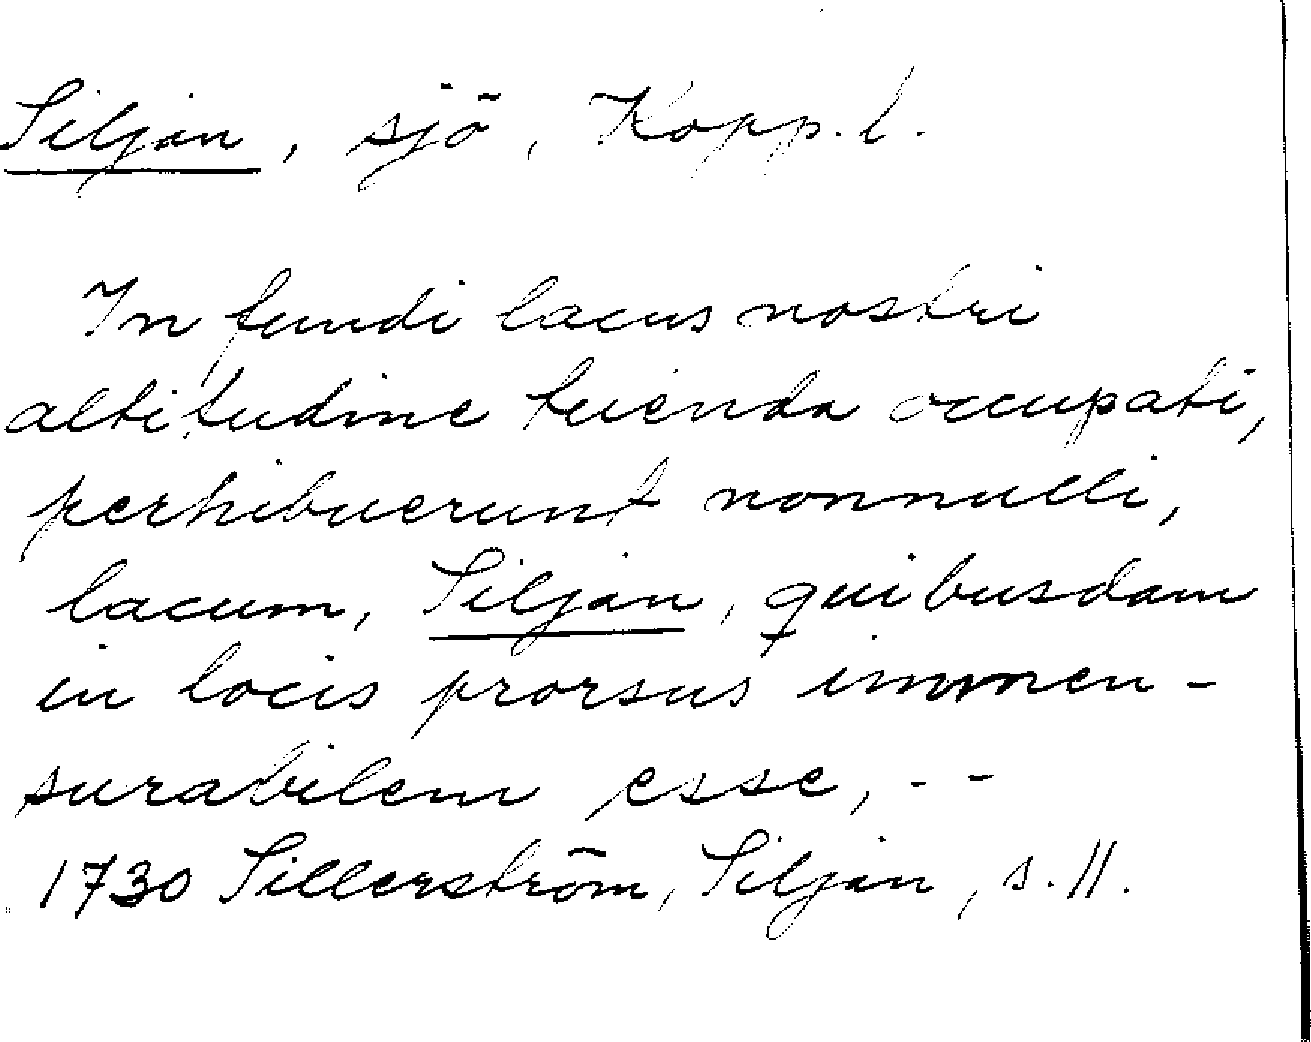 Siljan, sjö, Kopp. l.
In fundi lacus nostri
altitudine tuenda occupati,
perhibuerunt nonnulli,
lacum, Siljan, quibusdam
in locis prorsus immen-
surabilem esse, - -
1730 Sillerström, Siljan, s. 11.